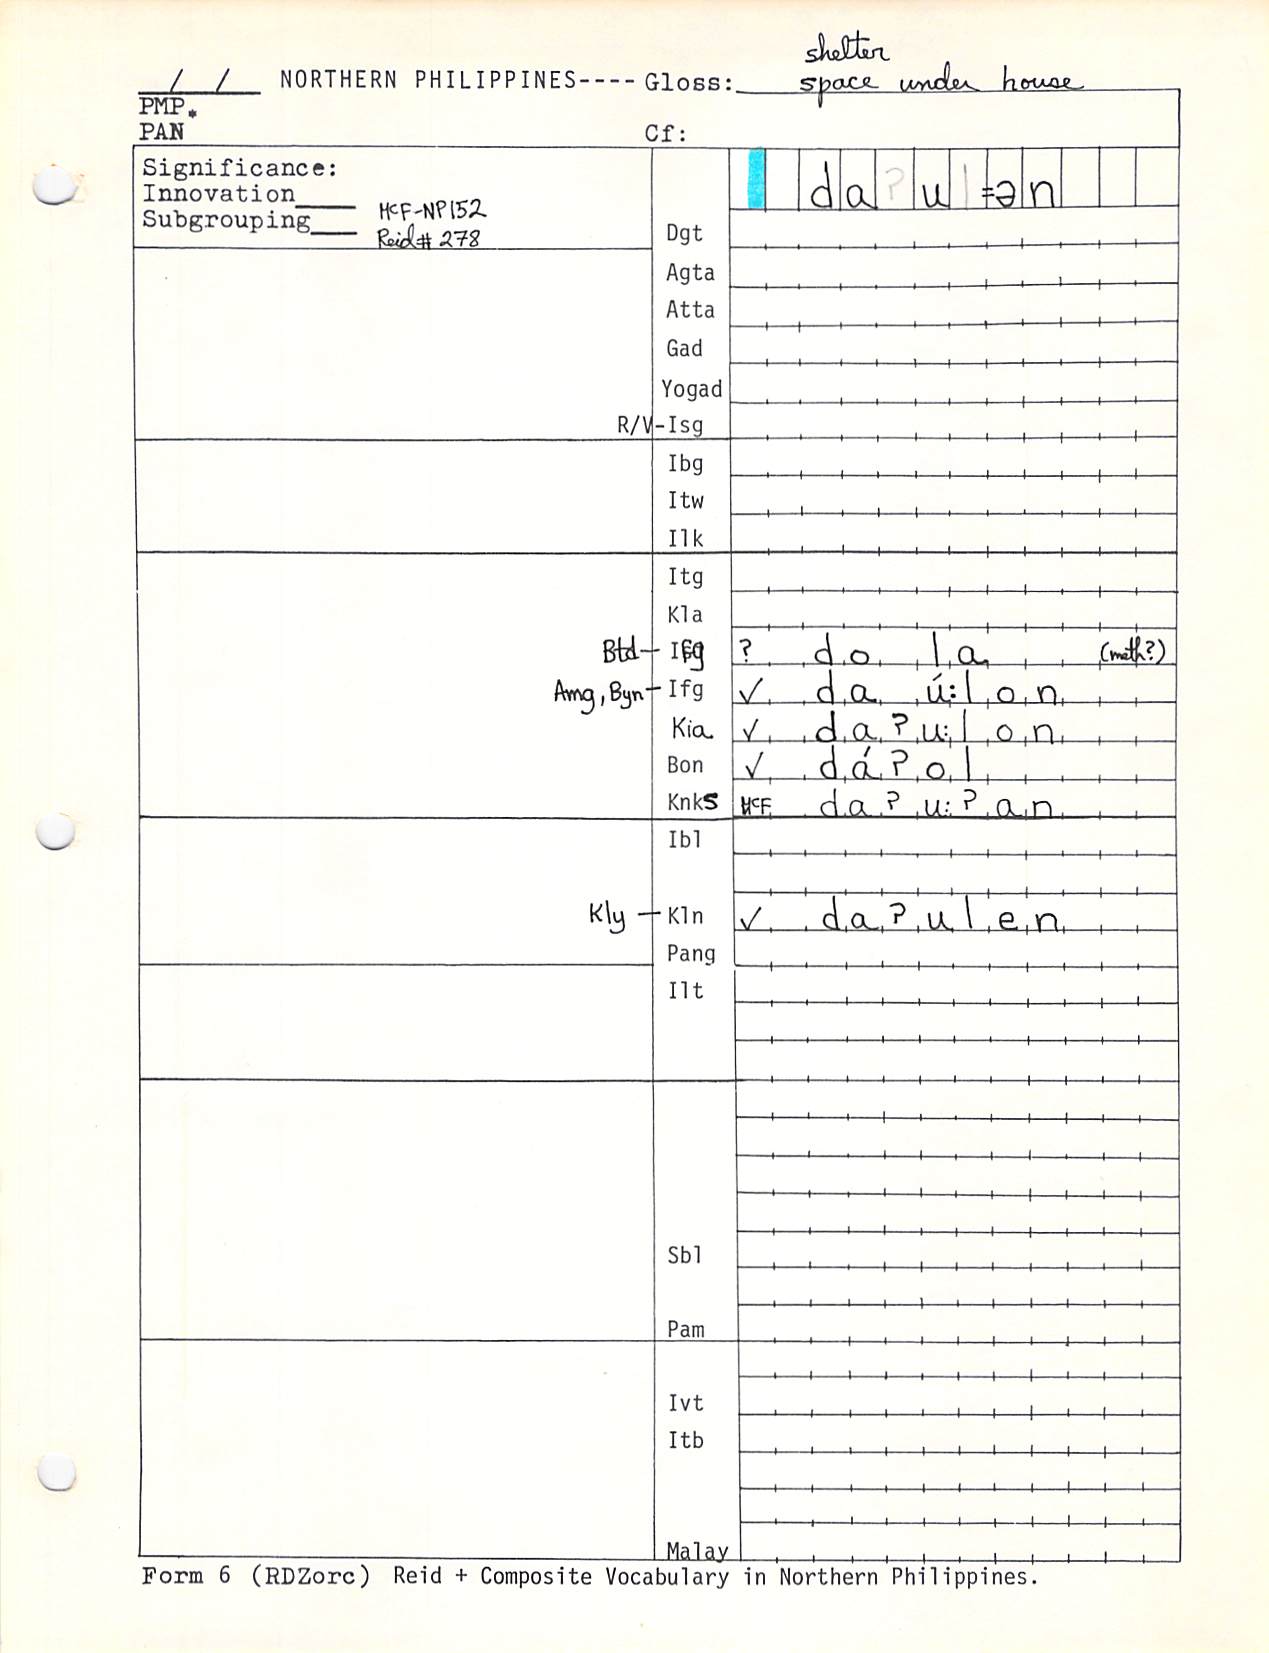 shelter
/ / NORTHERN PHILIPPINES---- Gloss: space under house
PMP*
PAN Cf:
Significance:
Innovation____ McF-NP152
Subgrouping___ Reid# 278
da?ul=ən
Dgt
Agta
Atta
Gad
Yogad
R/V-Isg
Ibg
Itw
Ilk
Itg
Kla
Btd- Ifg ? do la (meth?)
Amg, Byn- Ifg ✓ da ú:lon
Kia ✓ da?u:lon
Bon ✓ dá?ol
Knks McF da?u:?an
Ibl
Kly - Kln ✓ da?ulen
Pang
Ilt
Sbl
Pam
Ivt
Itb
Malay
Form 6 (RDZorc) Reid + Composite Vocabulary in Northern Philippines.